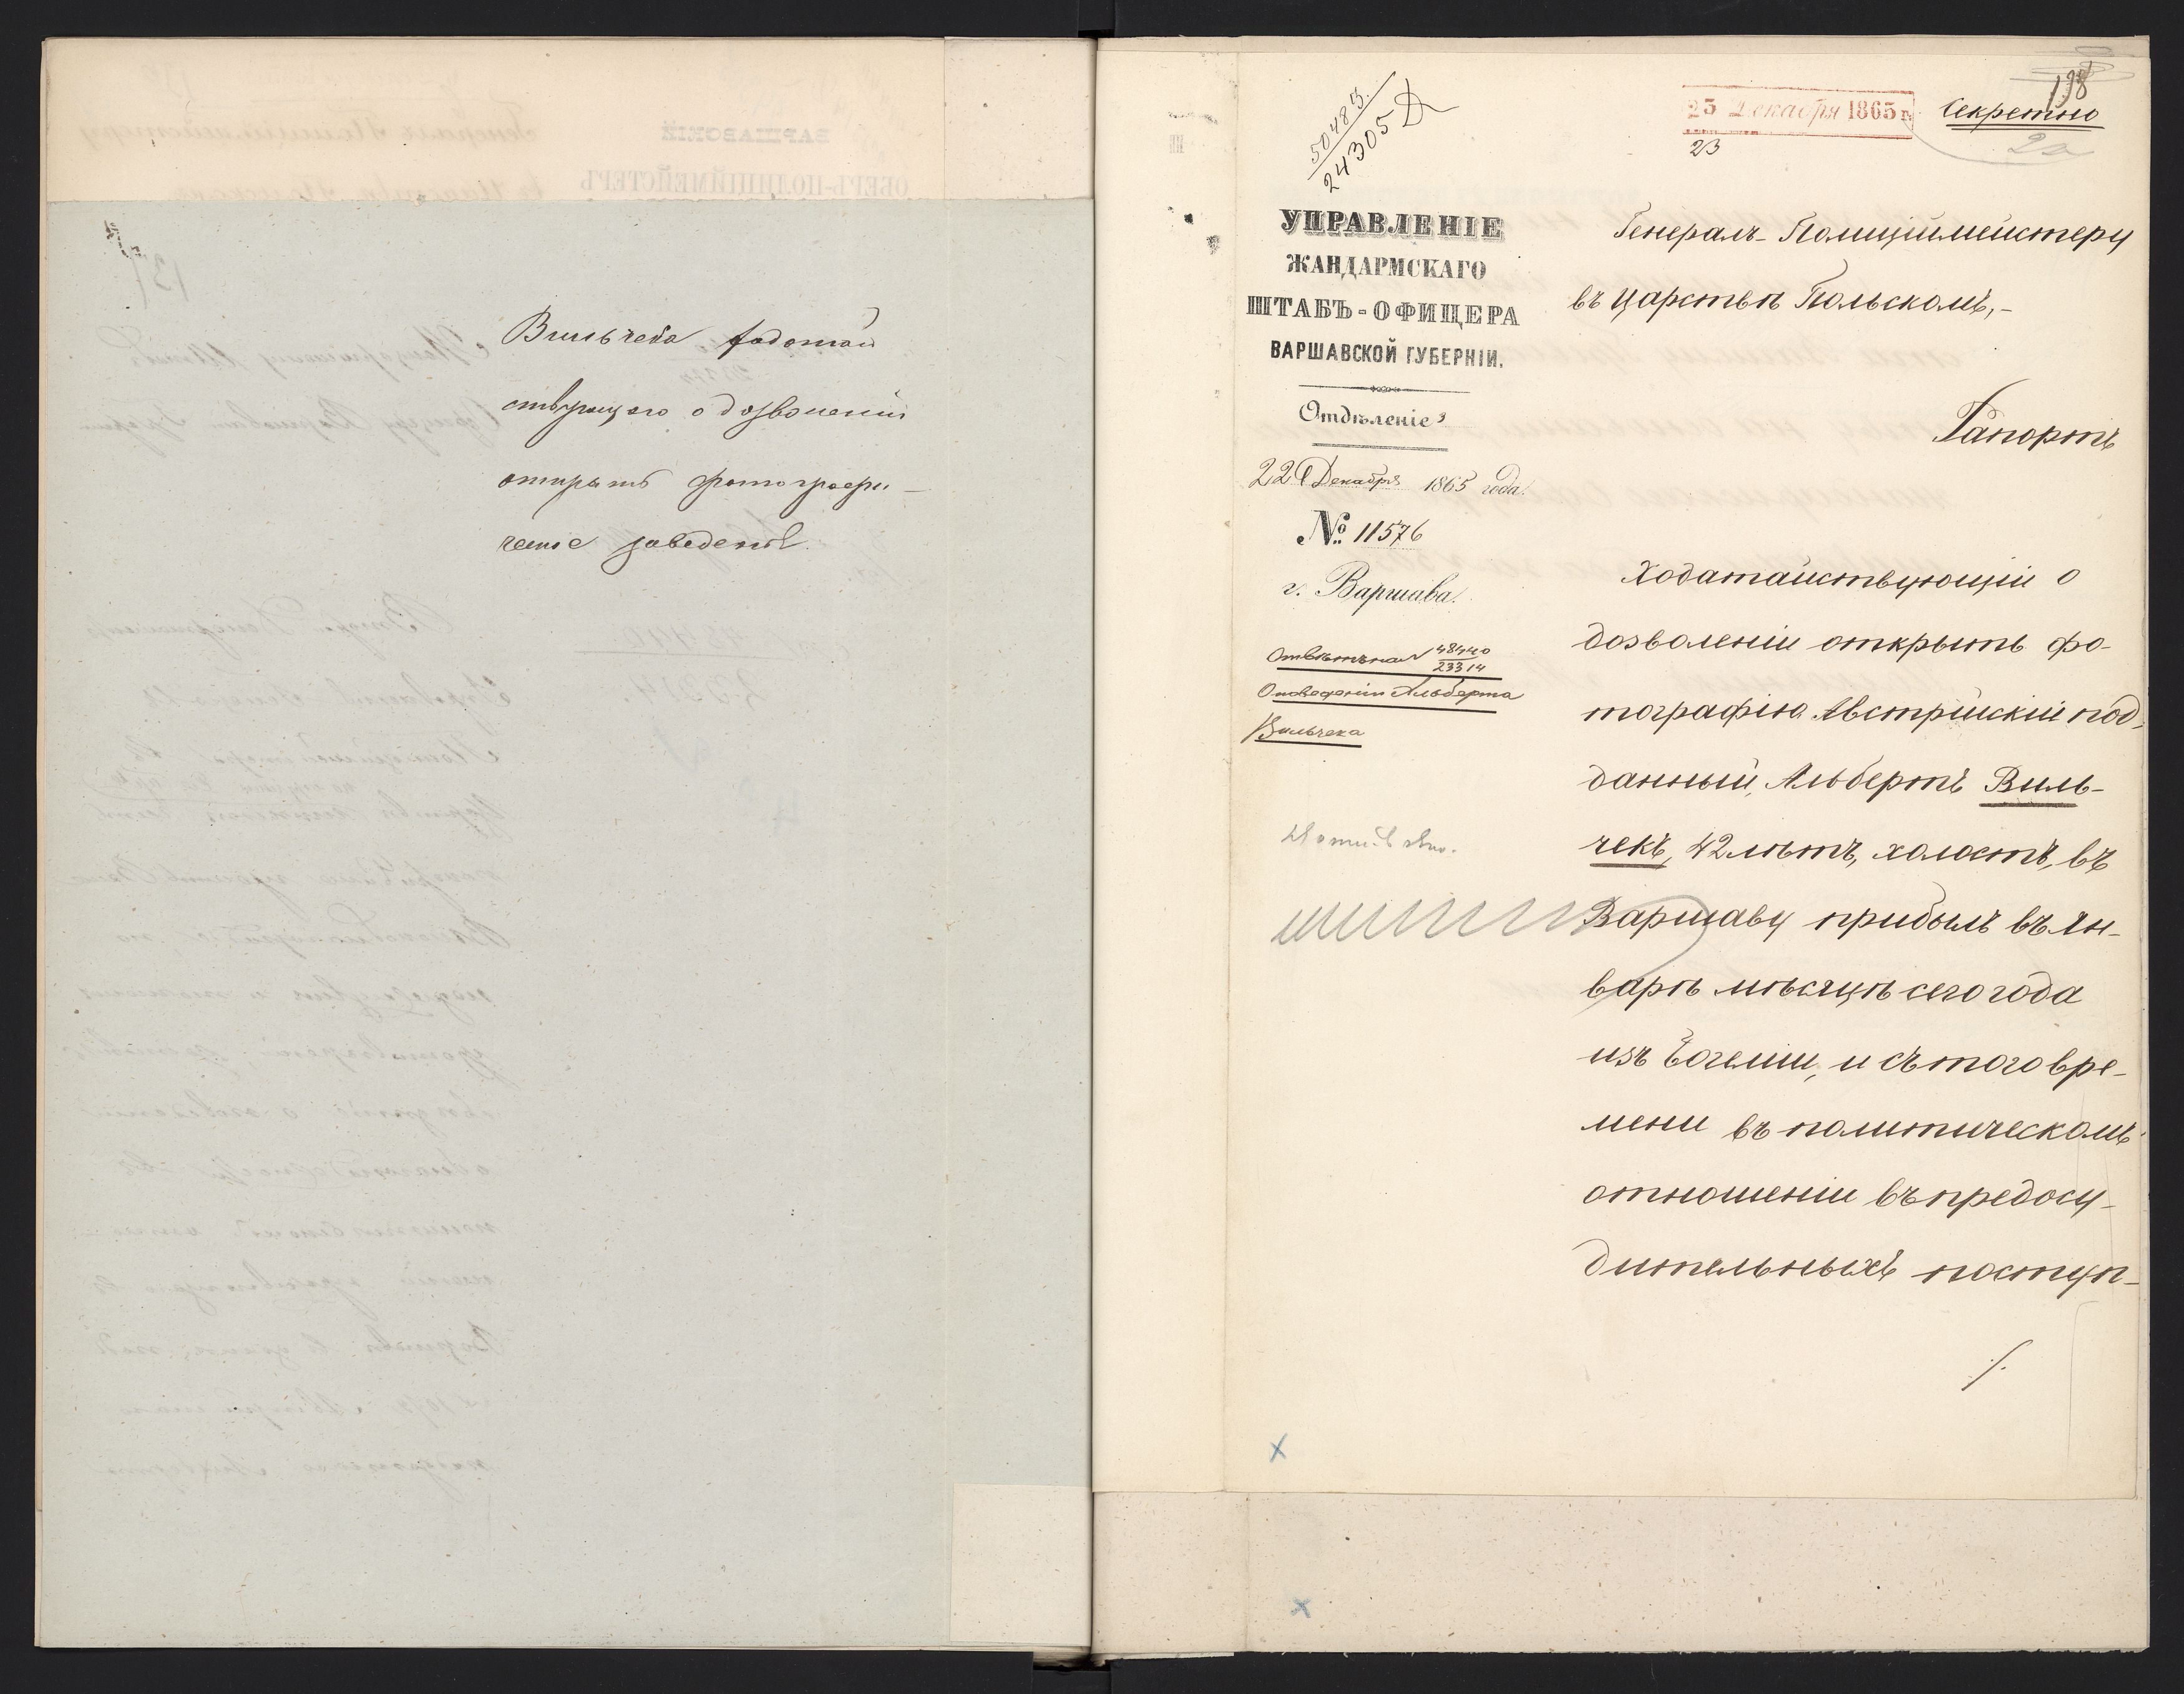 Вильчека ходатай
ствующаго о дозволеніи
открыть фотографи-
ческое заведеніе.
138
23 Декабря 1865 г.
Секретно
23
2а
50483.
24305
УПРАВЛЕНІЕ
ЖАНДАРМСКАГО
ШТАБЪ-ОФИЦЕРА
ВАРШАВСКОЙ ГУБЕРНІИ.
Отдѣленіе
22 Декабря 1865 года.
№ 11576
г. Варшава.
Отвѣтъ на № 48440
23314
О поведеніи Альберта
Вильчека
Генералъ-Полиціймейстеру
въ Царствѣ Польскомъ,-
Рапортъ
Ходатайствующій о
дозволеніи открыть фо-
тографію Австрійскій под-
данный, Альбертъ Виль-
чекъ, 42 лѣтъ, холостъ, въ
Варшаву прибылъ въ Ян-
варѣ мѣсяцѣ сего года
изъ Богеміи, и съ того вре-
мени въ политическомъ
отношеніи въ предосу-
дительныхъ поступ-